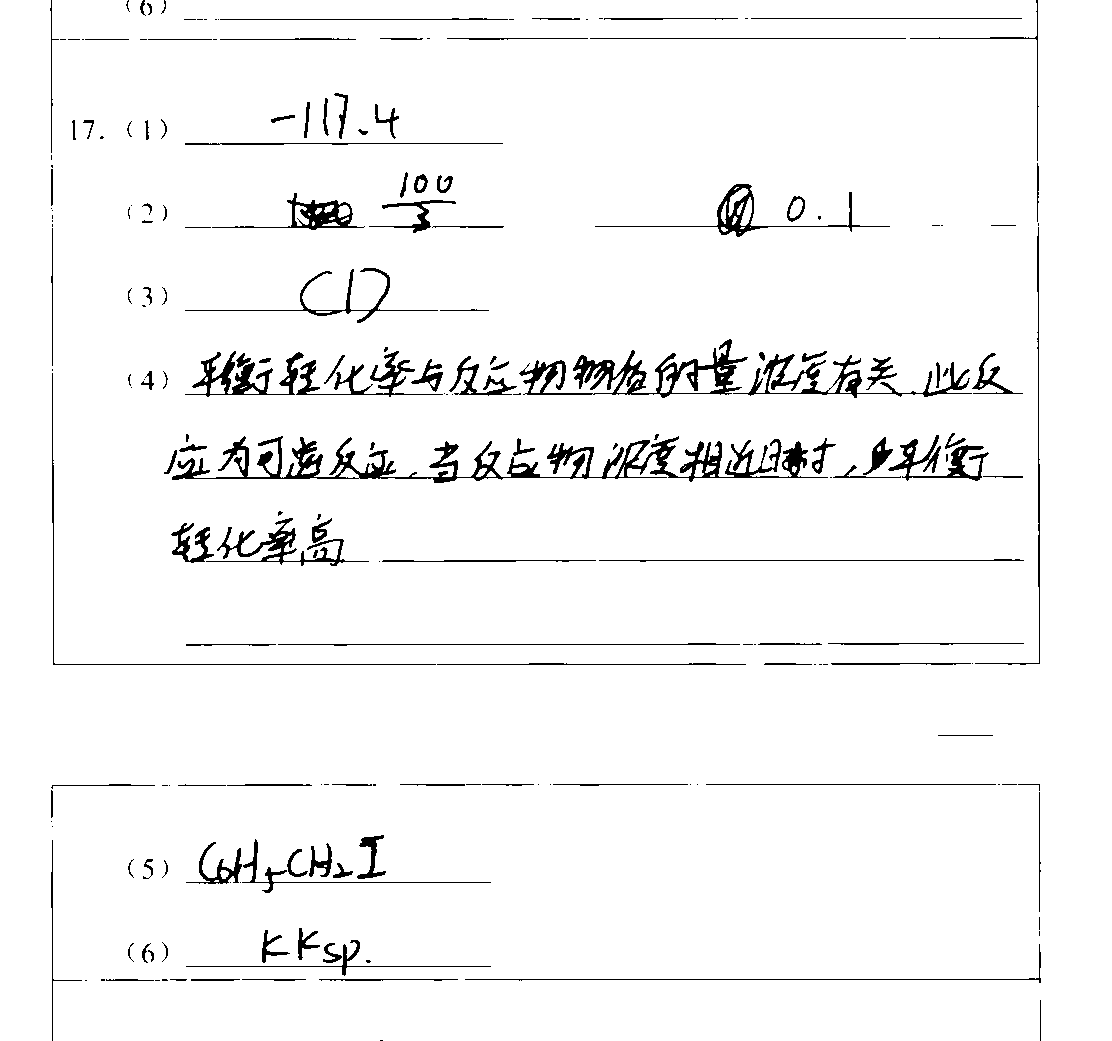 (6)
17. (1) -117.4
(2) 100/3 0.1
(3) (1)
(4) 平衡转化率与反应物物质的量浓度有关.此反
应为可逆反应,当反应物浓度相近时,平衡
转化率高
(5) C6H5CH2I
(6) KKsp.